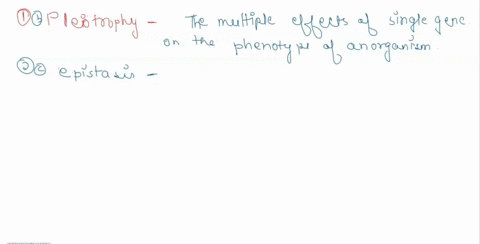 ① Pleiotrophy - The multiple effects of single gene
on the phenotype of an organism
② epistasis -